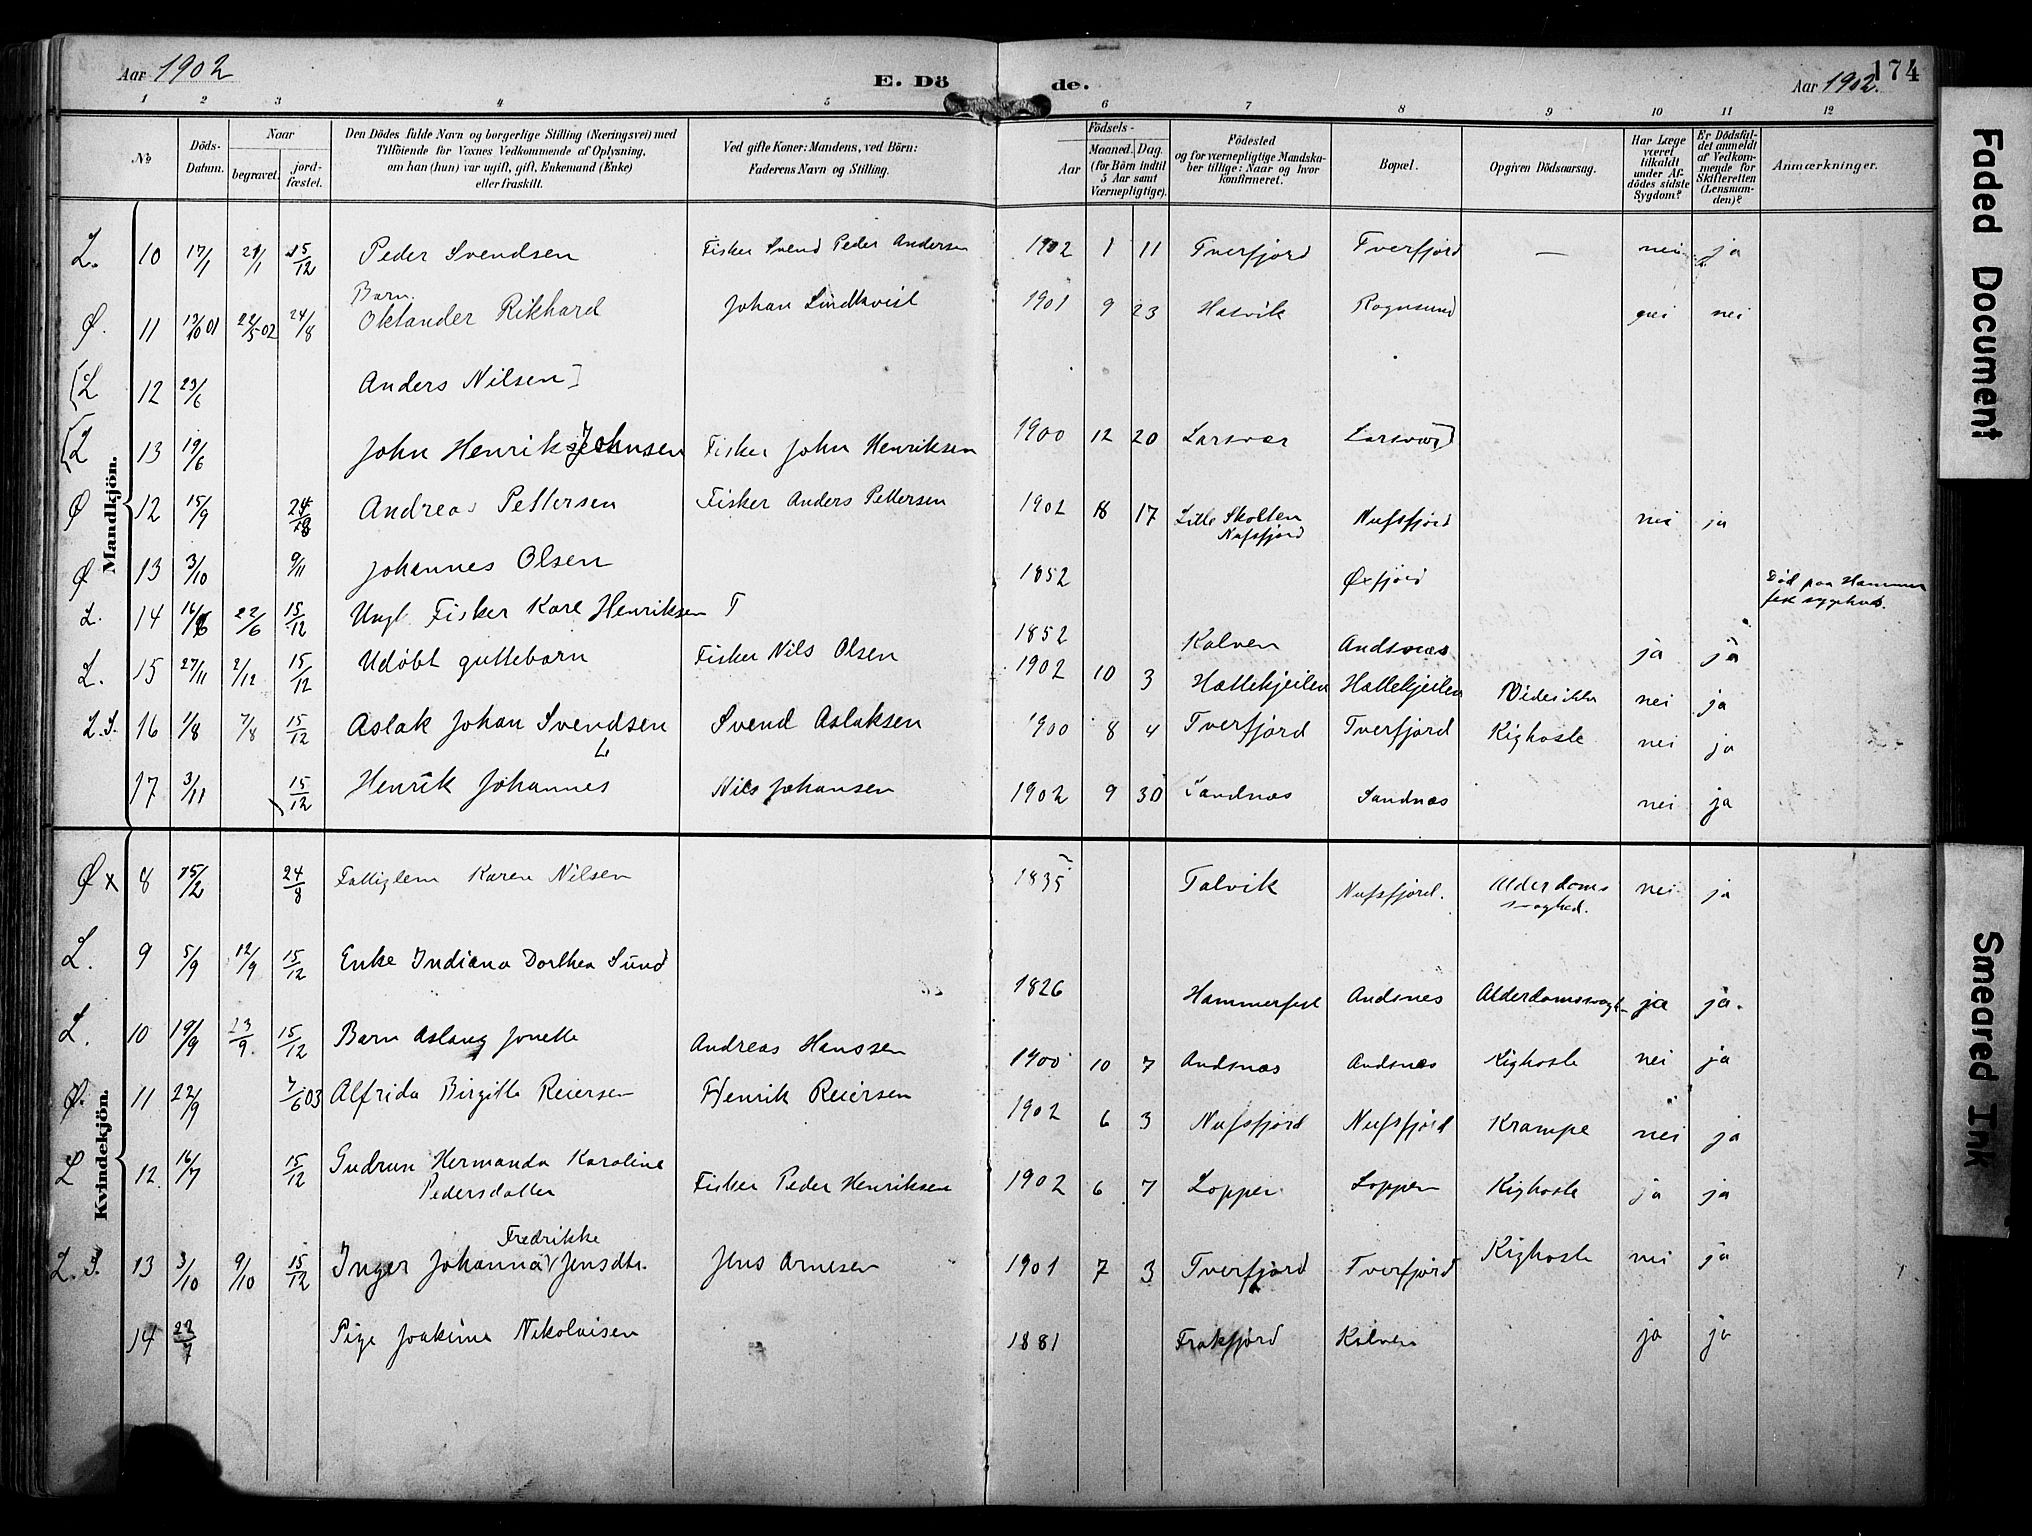 Aar 1902
E. Dö de.
Aar 1902.
174
1 2 3 4 5 6 7 8 9 10 11 12
No
Döds-Datum.
Naar
begravet.
jord-fæstet.
Den Dödes fulde Navn og borgerlige Stilling (Næringsvei) med
Tilföiende for Voxnes Vedkommende af Oplysning,
om han (hun) var ugift, gift, Enkemand (Enke)
eller fraskilt.
Ved gifte Koner: Mandens, ved Börn:
Faderens Navn og Stilling.
Födsels-
Aar
Maaned. Dag.
(for Börn indtil
5 Aar samt
Værnepligtige).
Födested
og for værnepligtige Mandska-
ber tillige: Naar og hvor
konfirmeret.
Bopæl.
Opgiven Dödsaarsag.
Har Læge
været
tilkaldt
under Af-
dödes sidste
Sygdom?
Er Dödsfal-
det anmeldt
af Vedkom-
mende for
Skifteretten
(Lensman-
den)?
Anmærkninger.
Mandkjön.
L. 10 17/1 29/1 15/12 Peder Svendsen Fisker Svend Peder Andersen 1902 1 11 Tverfjord Tverfjord — nei ja
Barn
Ø. 11 13/10 01 22/5 02 24/8 Oktander Rikhard Johan Lindkvist 1901 9 23 Hasvik Rognsund nei nei
[L 12 23/6 Anders Nilsen]
[L 13 19/6 John Henrik Johnsen Fisker John Henriksen 1900 12 20 Larsvær Larsvær]
Ø 12 15/9 24/8 Andreas Pettersen Fisker Anders Pettersen 1902 8 17 Lille Skolten Nufsfjord Nufsfjord nei ja
Ø 13 3/10 9/11 Johannes Olsen 1852 Øxfjord Död paa Hammer
fest sygehus.
L. 14 16/6 22/6 15/12 Ungk. Fisker Kare Henriksen 1852 Kalven Andsnes ja ja
L. 15 27/11 2/12 15/12 Udöbt guttebarn Fisker Nils Olsen 1902 10 3 Hattekjeilen Hattekjeilen Vides ikke nei ja
L.S. 16 1/8 7/8 15/12 Aslak Johan Svendsen Svend Aslaksen 1900 8 4 Tverfjord Tverfjord Kighoste nei ja
17 3/11 15/12 Henrik Johannes Nils Johansen 1902 9 30 Sandnæs Sandnæs nei ja
Kvindekjön.
Ø x 8 15/2 24/8 Fattiglem Karen Nilsen 1835 Talvik Nufsfjord. Alderdoms
svaghed. nei ja
L. 9 5/9 12/9 15/12 Enke Indiana Dorthea Sund 1826 Hammerfest Andsnes Alderdomssvagh. ja ja.
L. 10 19/9 23/9 15/12 Barn Aslaug Jonette Andreas Hanssen 1900 10 7 Andsnæs Andsnes Kighoste nei ja
Ø. 11 22/9 7/6 03 Alfrida Birgitte Reiersen Henrik Reiersen 1902 6 3 Nufsfjord Nufsfjord Krampe nei ja
L 12 16/7 15/12 Gudrun Hermanda Karoline
Pedersdatter Fisker Peder Henriksen 1902 6 7 Loppen Loppen Kighoste ja ja
Fredrikke
L.S. 13 3/10 9/10 15/12 Inger Johanna Jensdtr. Jens Arnesen 1901 7 3 Tverfjord Tverfjord Kighoste nei ja
14 22/7 Pige Joakime Nikolaisen 1881 Frakfjord Kalven ja ja
Faded Document
Smeared Ink